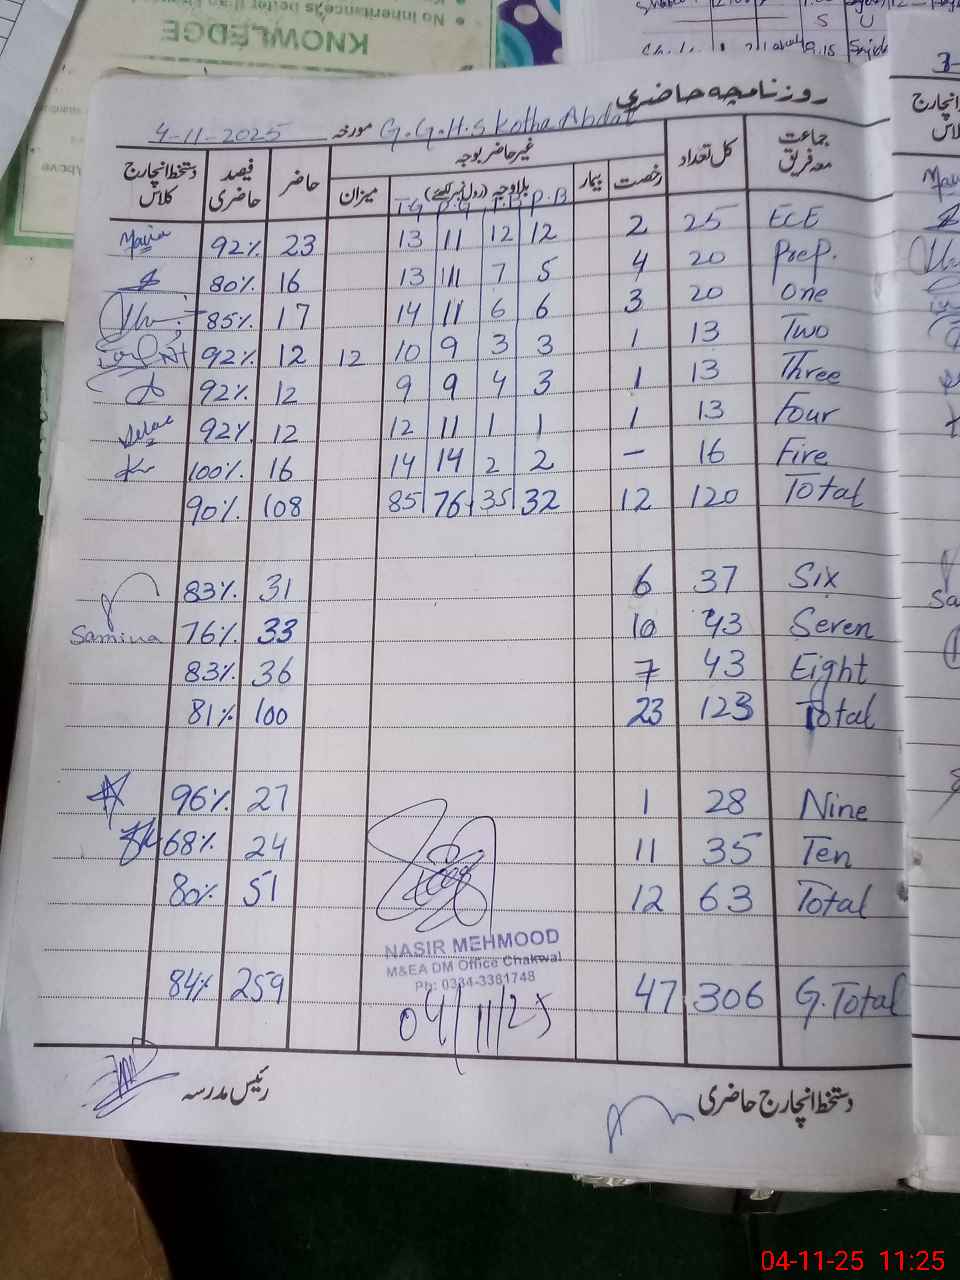 KNOWLEDGE
روزنامچہ حاضری
G.G.H.S Kotha Abdal مورخہ 4-11-2025
جماعت معہ فریق کل تعداد رخصت بیمار غیر حاضر بوجہ بلاوجہ (رول نمبر لکھئے) میزان حاضر فیصد حاضری دستخط انچارج کلاس
P.B T.B P.G T.G
ECE 25 2 12 12 11 13 23 92%
Prep. 20 4 5 7 11 13 16 80%
One 20 3 6 6 11 14 17 85%
Two 13 1 3 3 9 10 12 12 92%
Three 13 1 3 4 9 9 12 92%
Four 13 1 1 1 11 12 12 92%
Five 16 – 2 2 14 14 16 100%
Total 120 12 32 35 76 85 108 90%
Six 37 6 31 83%
Seven 43 10 33 76% Samina
Eight 43 7 36 83%
Total 123 23 100 81%
Nine 28 1 27 96%
Ten 35 11 24 68%
Total 63 12 51 80%
NASIR MEHMOOD
M&EA DM Office Chakwal
Ph: 0334-3381748
G.Total 306 47 259 84%
04/11/25
دستخط انچارج حاضری رئیس مدرسہ
04-11-25 11:25